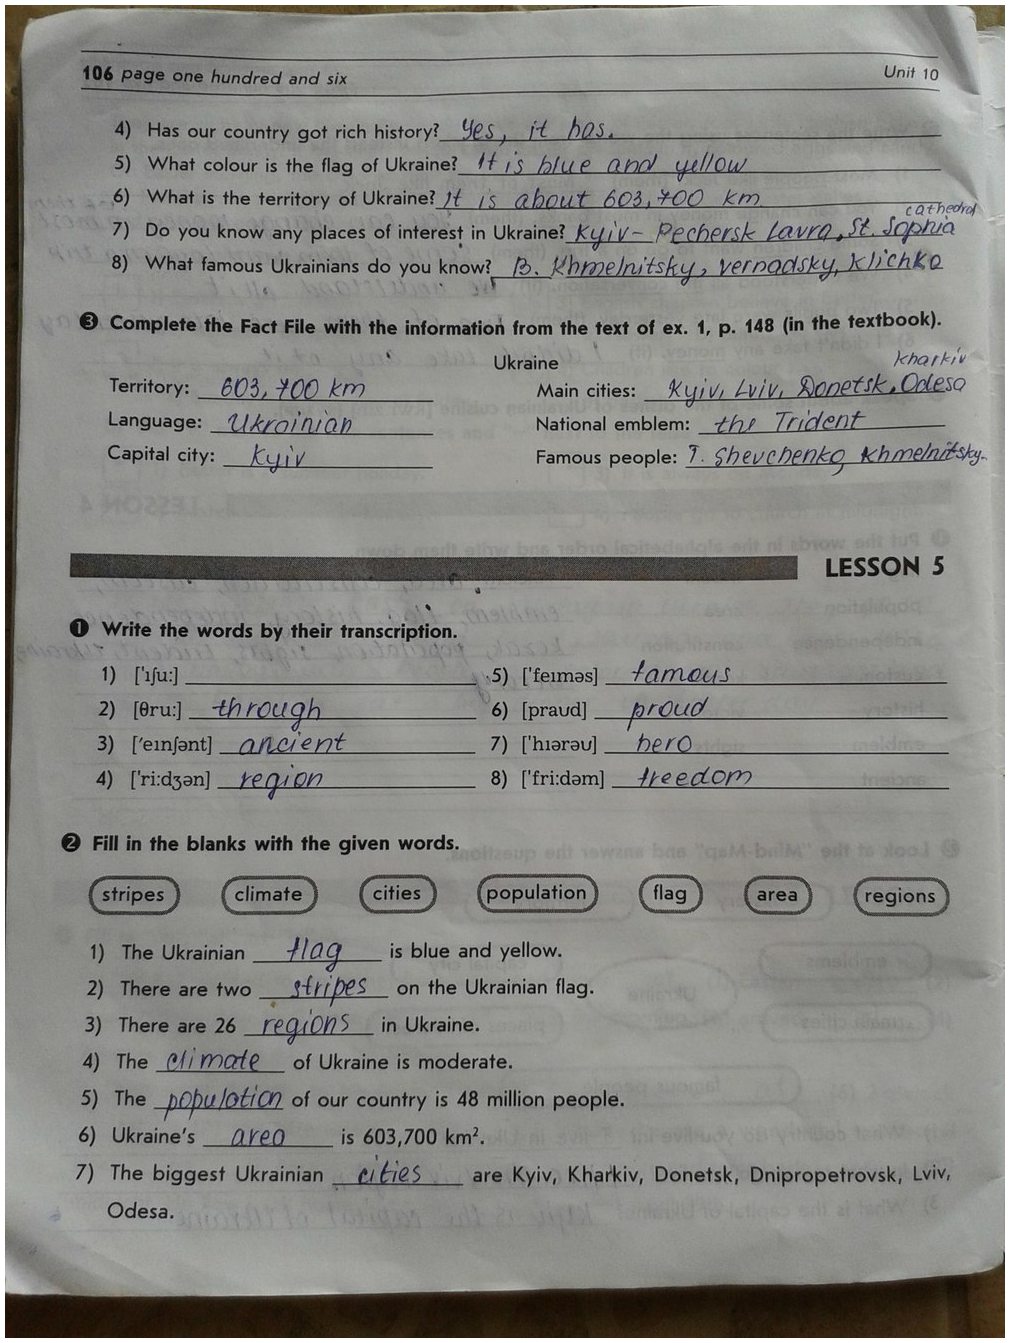 106 page one hundred and six Unit 10
4) Has our country got rich history? Yes, it has.
5) What colour is the flag of Ukraine? It is blue and yellow
6) What is the territory of Ukraine? It is about 603,700 km
cathedral
7) Do you know any places of interest in Ukraine? Kyiv-Pechersk Lavra, St. Sophia
8) What famous Ukrainians do you know? B. Khmelnitsky, Vernadsky, Klichko
3 Complete the Fact File with the information from the text of ex. 1, p. 148 (in the textbook).
Ukraine Kharkiv
Territory: 603,700 km Main cities: Kyiv, Lviv, Donetsk, Odesa
Language: Ukrainian National emblem: the Trident
Capital city: Kyiv Famous people: T. Shevchenko, Khmelnitsky
LESSON 5
1 Write the words by their transcription.
1) ['ɪʃu:] 5) ['feɪməs] famous
2) [θru:] through 6) [praʊd] proud
3) ['eɪnʃənt] ancient 7) ['hɪərəʊ] hero
4) ['ri:dʒən] region 8) ['fri:dəm] freedom
2 Fill in the blanks with the given words.
stripes climate cities population flag area regions
1) The Ukrainian flag is blue and yellow.
2) There are two stripes on the Ukrainian flag.
3) There are 26 regions in Ukraine.
4) The climate of Ukraine is moderate.
5) The population of our country is 48 million people.
6) Ukraine's area is 603,700 km².
7) The biggest Ukrainian cities are Kyiv, Kharkiv, Donetsk, Dnipropetrovsk, Lviv,
Odesa.